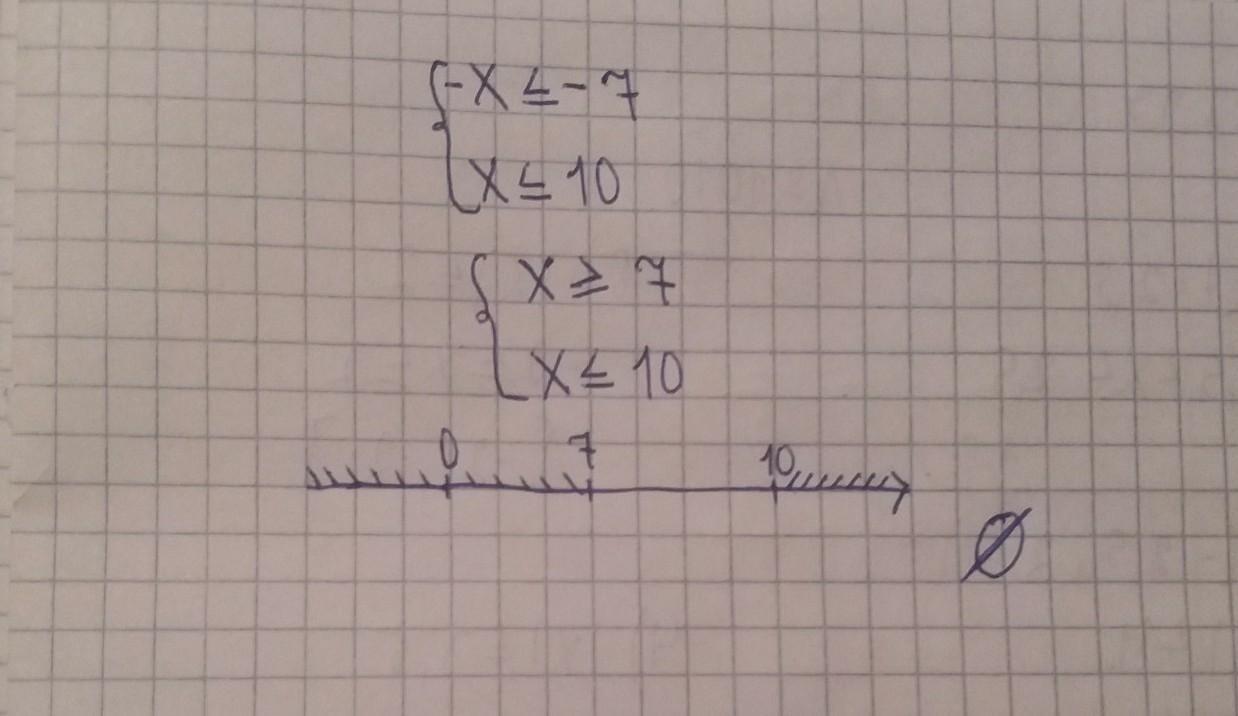 -x ≤ -7
x ≤ 10
x ≥ 7
x ≤ 10
0 7 10
∅